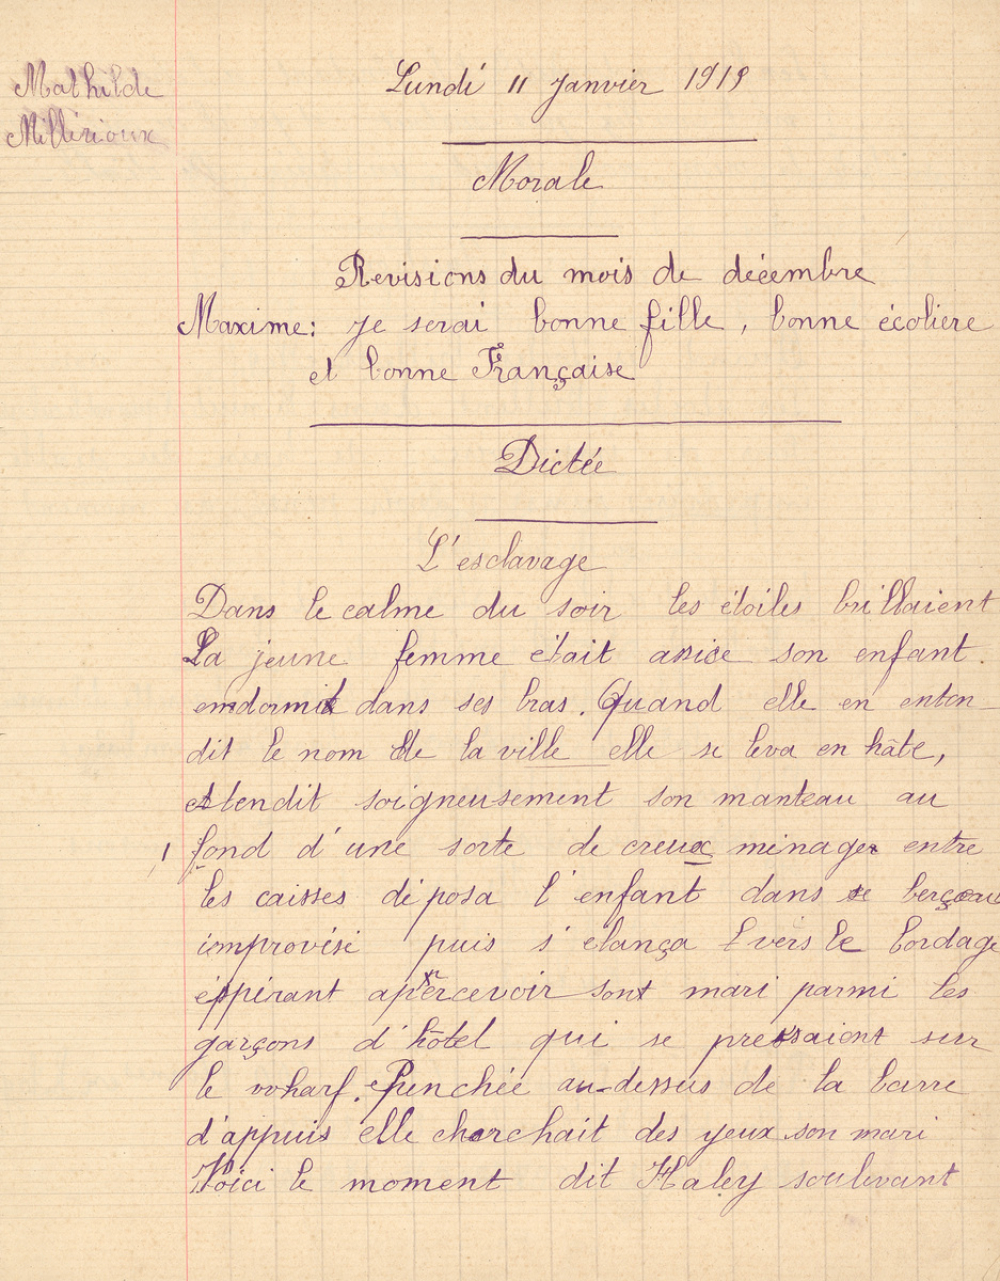 Mathilde
Millérioux
Lundi 11 Janvier 1919
Morale
Revisions du mois de décembre
Maxime: Je serai bonne fille, bonne écolière
et bonne Française
Dictée
L'esclavage
Dans le calme du soir les étoiles brillaient
La jeune femme était assise son enfant.
endormit dans ses bras. Quand elle en enten
dit le nom de la ville elle se leva en hâte,
etendit soigneusement son manteau au
1 fond d'une sorte de creux ménager entre
les caisses déposa l'enfant dans se
improvisé puis s'elança vers le bordage
éspérant apercevoir sont mari parmi les
garçons d'hôtel qui se pressaient sur
le wharf. Penchée au-dessus de la barre
d'appuis elle cherchait des yeux son mari
Voici le moment dit Haley soulevant